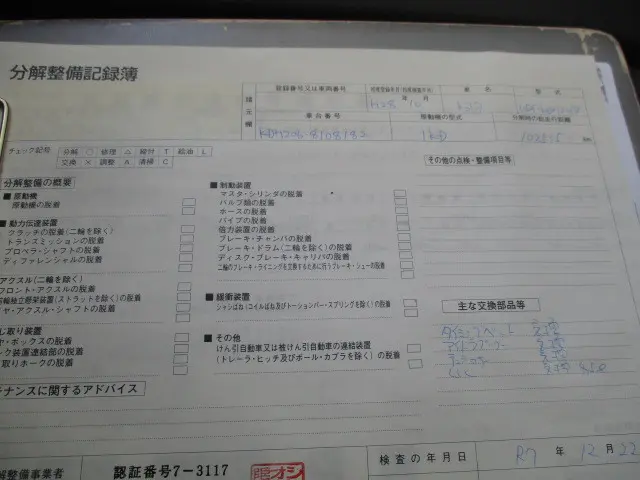 分解整備記録簿
諸元欄
登録番号又は車両番号
初度登録年月(初度検査年月)
車名
型式
H28年10月
トヨタ
車台番号
原動機の型式
分解時の総走行距離
KDH206-8108182
1KD
km
チェック記号
分解 ○ 修理 △ 締付 T 給油 L
交換 × 調整 A 清掃 C
その他の点検・整備項目等
分解整備の概要
■原動機
原動機の脱着
■動力伝達装置
クラッチの脱着(二輪を除く)
トランスミッションの脱着
プロペラ・シャフトの脱着
ディファレンシャルの脱着
アクスル(二輪を除く)
フロント・アクスルの脱着
前輪独立懸架装置(ストラットを除く)の脱着
ヤ・アクスル・シャフトの脱着
じ取り装置
ヤ・ボックスの脱着
ンク装置連結部の脱着
取りホークの脱着
■制動装置
マスタ・シリンダの脱着
バルブ類の脱着
ホースの脱着
パイプの脱着
倍力装置の脱着
ブレーキ・チャンバの脱着
ブレーキ・ドラム(二輪を除く)の脱着
ディスク・ブレーキ・キャリパの脱着
二輪のブレーキ・ライニングを交換するために行うブレーキ・シューの脱着
■緩衝装置
シャシばね(コイルばね及びトーションバー・スプリングを除く)の脱着
■その他
けん引自動車又は被けん引自動車の連結装置
(トレーラ・ヒッチ及びボール・カプラを除く)の脱着
主な交換部品等
ナンスに関するアドバイス
解整備事業者
認証番号7-3117
検査の年月日
R7年12月22